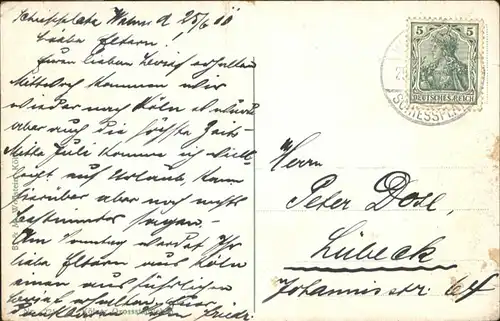 Schiessplatz Wahn d 25/6 08
Liebe Eltern!
Euren lieben erhalten
Mittwoch kommen wir
wieder nach Köln es wurde
aber auch die höchste Zeit
Mitte Juli komme ich viel-
leicht auf Urlaub, kann
hierüber aber noch nichts
bestimmtes sagen.
Am Sonntag werdet Ihr
liebe Eltern aus Köln
einen ausführlichen
erhalten. Euer
5 5
DEUTSCHES REICH
SCHIESSPLATZ
Herrn
Peter Dose,
Lübeck
Johannisstr. 64